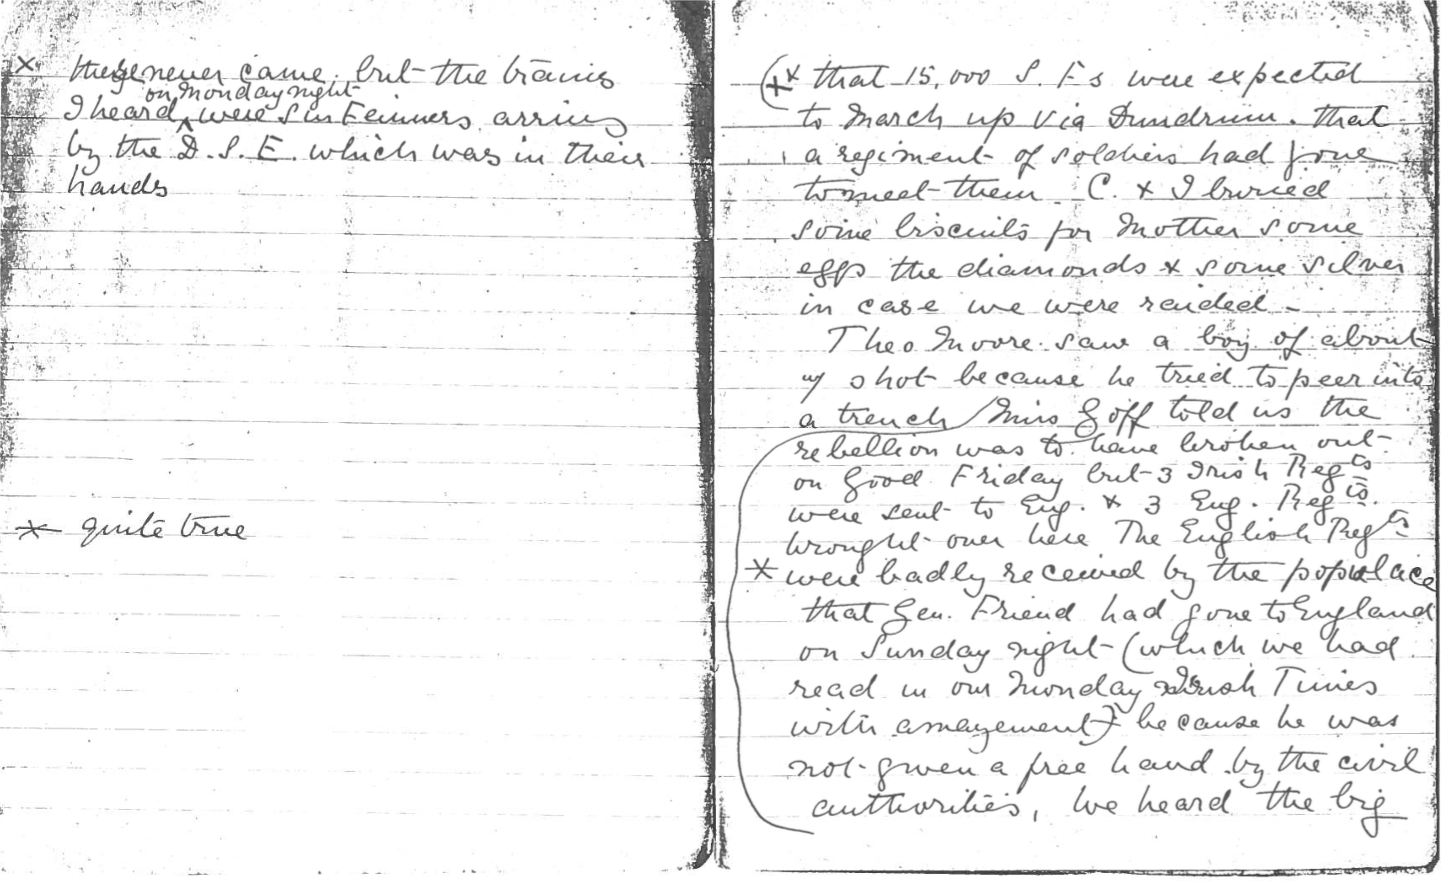 × these never came. but the trains
on Monday night
I heard ^ were Sin Feinners arriving
by the D. S. E. which was in their
hands
× quite true
(×× that 15,000 S. Fs were expected
to March up via Dundrum. that
a regiment of soldiers had gone
to meet them. C. & I buried
some biscuits for Mother some
eggs the diamonds & some silver
in case we were raided -
Theo Moore saw a boy of about
shot because he tried to peer into
a trench / Miss Goff told us the
rebellion was to have broken out
on Good Friday but 3 Irish Regts
were sent to Eng. & 3 Eng. Regts.
brought over here The English Regts
× were badly received by the populace
that Gen. Friend had gone to England
on Sunday night (which we had
read in our Monday Irish Times
with amazement) because he was
not given a free hand by the civil
authorities, We heard the big